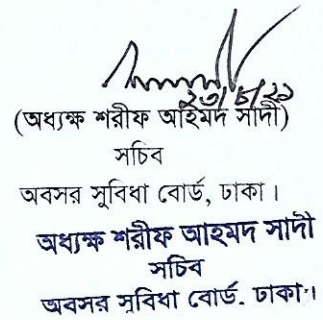 ২৩/৮/২১
(অধ্যক্ষ শরীফ আহমদ সাদী)
সচিব
অবসর সুবিধা বোর্ড, ঢাকা।
অধ্যক্ষ শরীফ আহমদ সাদী
সচিব
অবসর সুবিধা বোর্ড. ঢাকা।